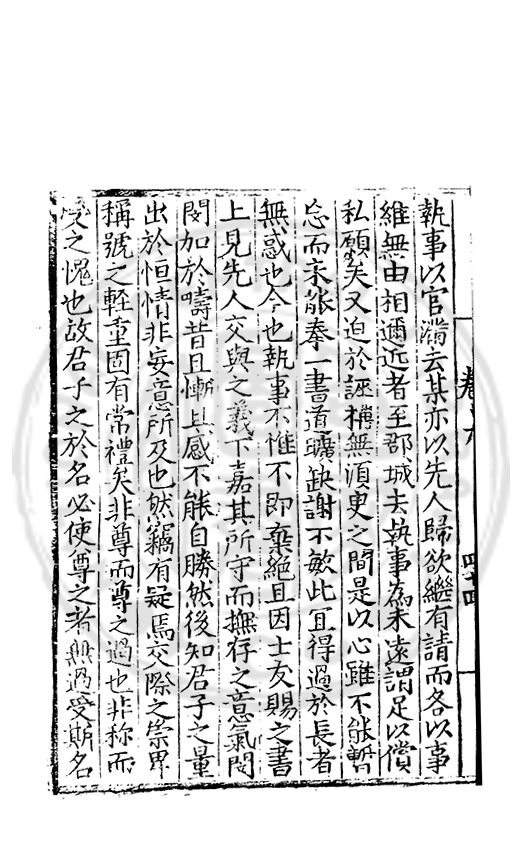 執事以官滿去某亦以先人歸欲繼有請而各以事
維無由相邇近者至郡城去執事為未遠謂足以償
私願矣又迫於誣稱無須臾之間是以心雖不能暫
忘而未能奉一書道曠缺謝不敏此宜得過於長者
無惑也今也執事不惟不即棄絕且因士友賜之書
上見先人交與之義下嘉其所守而撫存之意氣閔
閔加於疇昔且慚且感不能自勝然後知君子之量
出於恒情非妄意所及也然竊有疑焉交際之崇畀
稱號之輕重固有常禮矣非尊而尊之過也非称而
受之愧也故君子之於名必使尊之者無過受斯名
卷六
四十四